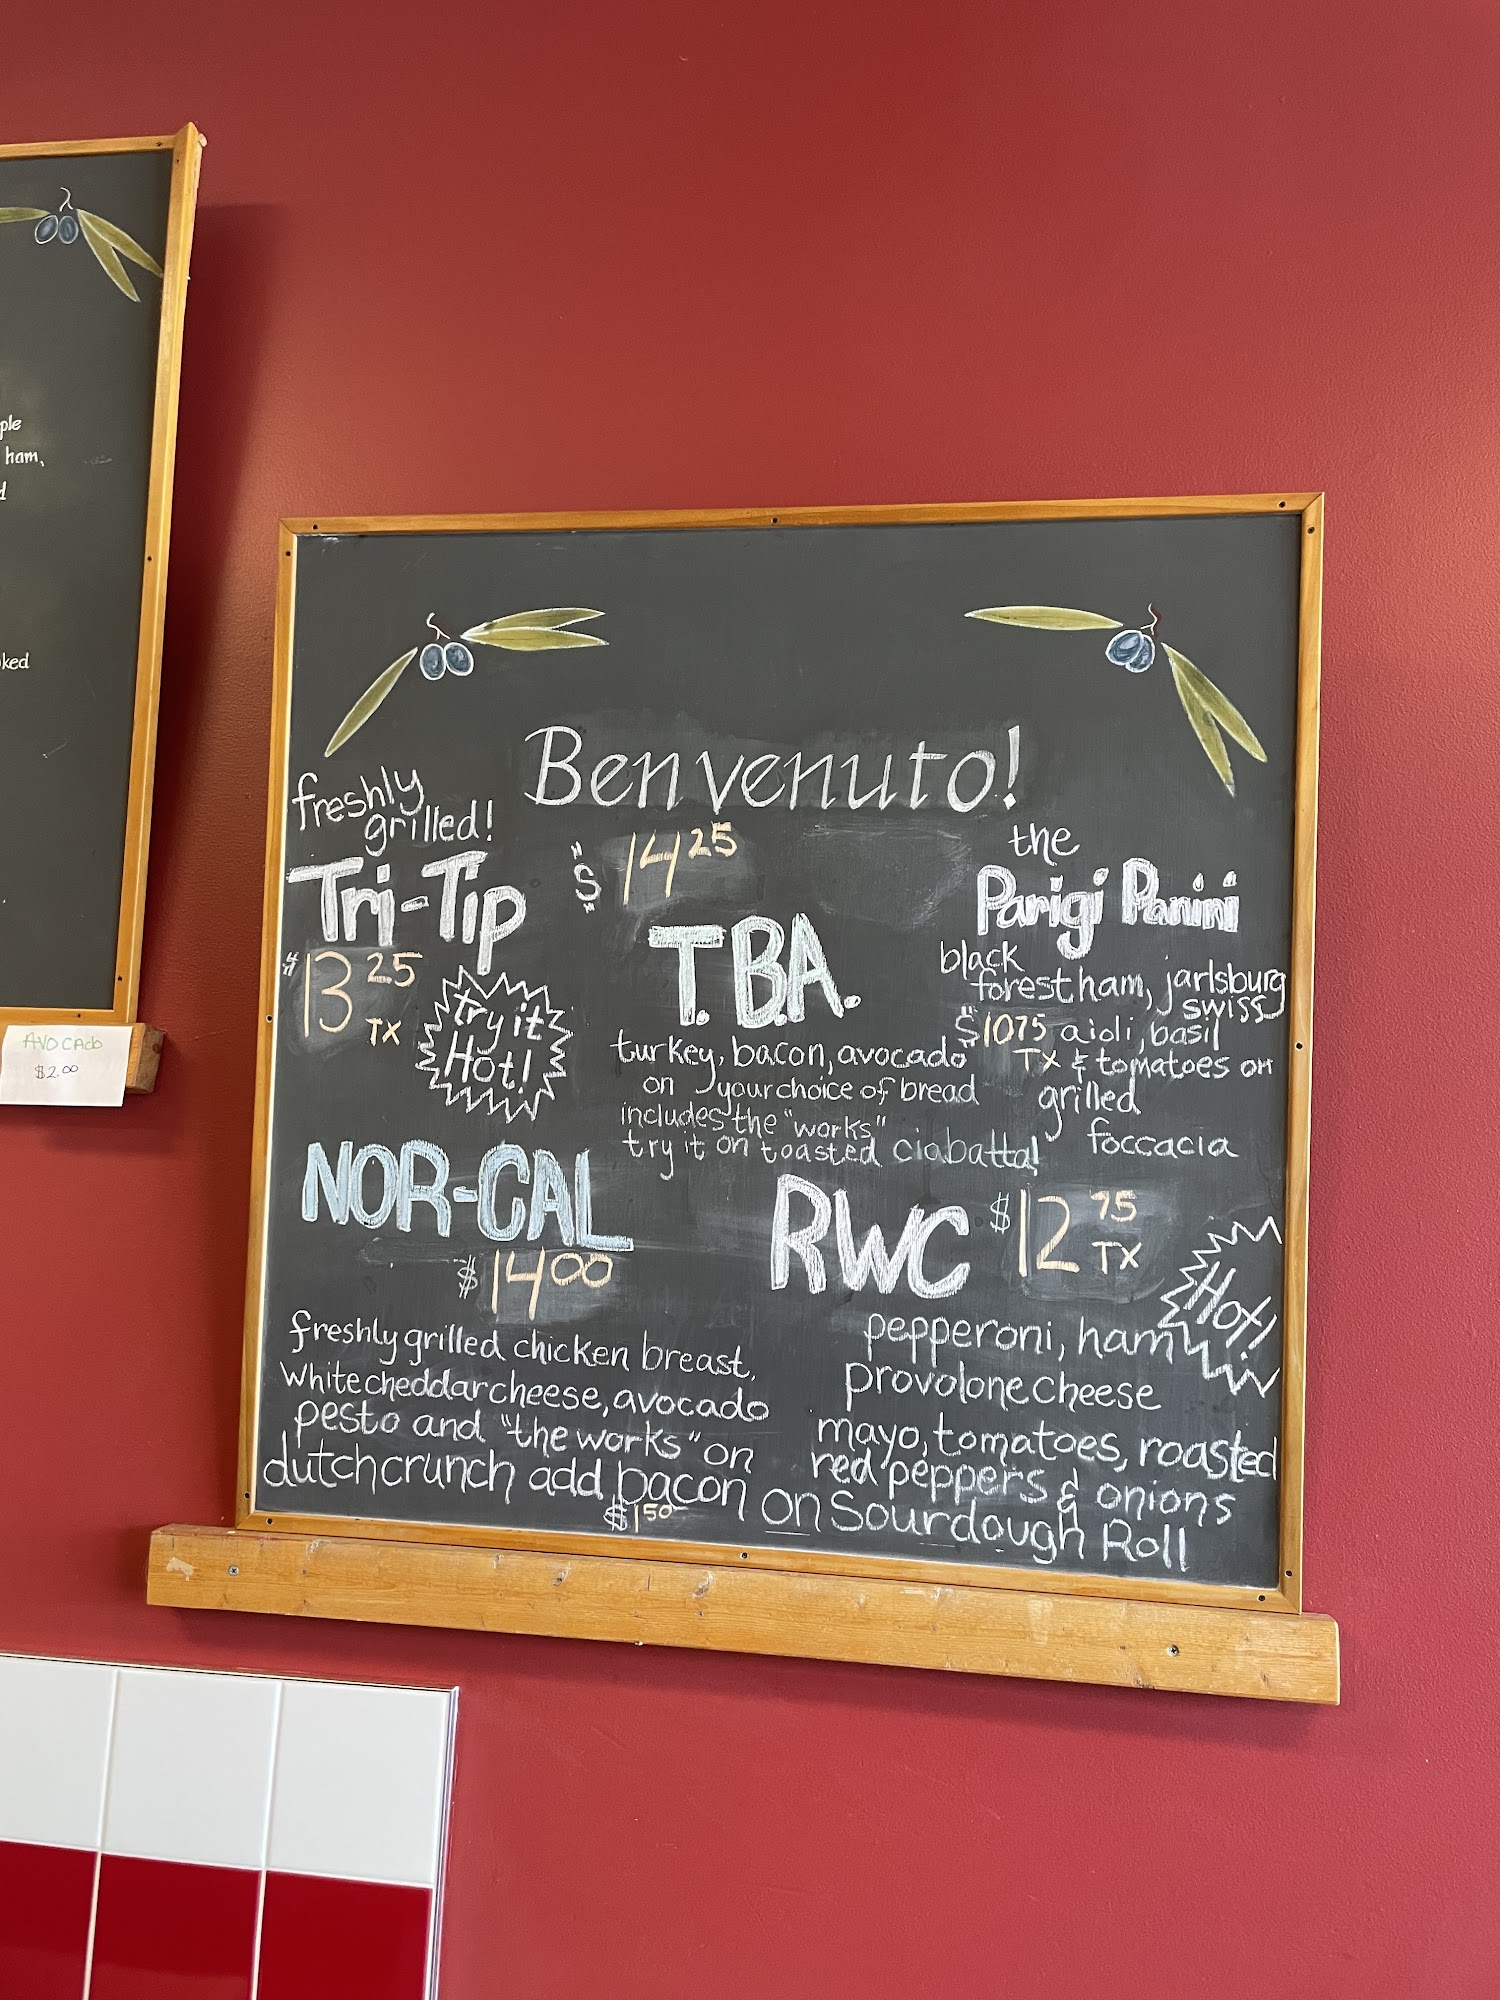 ham,
AVOCADO
$2.00
Benvenuto!
freshly
grilled!
Tri-Tip
$13.25
TX
try it
Hot!
$14.25
T.B.A.
turkey, bacon, avocado
on your choice of bread
includes the "works"
try it on toasted ciabatta!
the
Parigi Panini
black
forest ham, jarlsburg
swiss
$1075 aioli, basil
TX & tomatoes on
grilled
foccacia
NOR-CAL
$14.00
freshly grilled chicken breast,
white cheddar cheese, avocado
pesto and "the works" on
dutch crunch add bacon
$1.50
RWC $12.75
TX
Hot!
pepperoni, ham
provolone cheese
mayo, tomatoes, roasted
red peppers & onions
on Sourdough Roll